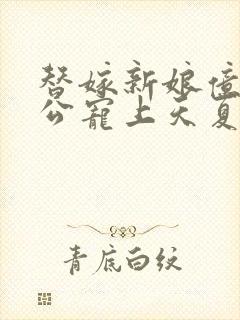 替嫁新娘亿
公宠上天夏
青底白纹